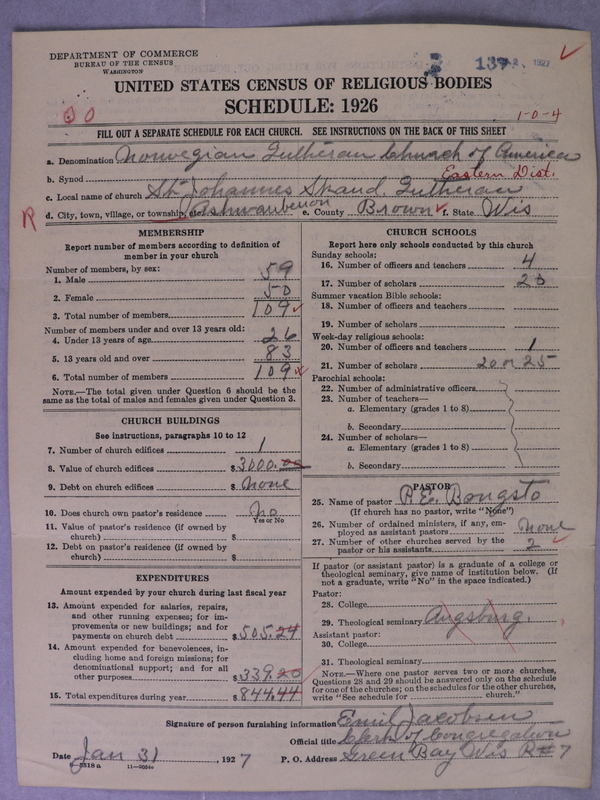 DEPARTMENT OF COMMERCE
BUREAU OF THE CENSUS
WASHINGTON
139 1927
UNITED STATES CENSUS OF RELIGIOUS BODIES
SCHEDULE: 1926
1-0-4
FILL OUT A SEPARATE SCHEDULE FOR EACH CHURCH. SEE INSTRUCTIONS ON THE BACK OF THIS SHEET
a. Denomination Norwegian Lutheran Church of America
b. Synod Eastern Dist.
c. Local name of church St. Johannes Strand. Lutheran
R d. City, town, village, or township, etc. Ashwaubenon e. County Brown f. State Wis
MEMBERSHIP
Report number of members according to definition of member in your church
Number of members, by sex:
1. Male 59
2. Female 50
3. Total number of members 109
Number of members under and over 13 years old:
4. Under 13 years of age 26
5. 13 years old and over 83
6. Total number of members 109
NOTE.—The total given under Question 6 should be the same as the total of males and females given under Question 3.
CHURCH BUILDINGS
See instructions, paragraphs 10 to 12
7. Number of church edifices 1
8. Value of church edifices $3000.00
9. Debt on church edifices $ None
10. Does church own pastor's residence? No
Yes or No
11. Value of pastor's residence (if owned by church) $
12. Debt on pastor's residence (if owned by church) $
EXPENDITURES
Amount expended by your church during last fiscal year
13. Amount expended for salaries, repairs, and other running expenses; for improvements or new buildings; and for payments on church debt $505.24
14. Amount expended for benevolences, including home and foreign missions; for denominational support; and for all other purposes $339.20
15. Total expenditures during year $844.44
CHURCH SCHOOLS
Report here only schools conducted by this church
Sunday schools:
16. Number of officers and teachers 4
17. Number of scholars 23
Summer vacation Bible schools:
18. Number of officers and teachers
19. Number of scholars
Week-day religious schools:
20. Number of officers and teachers 1
21. Number of scholars 20 or 25
Parochial schools:
22. Number of administrative officers
23. Number of teachers—
a. Elementary (grades 1 to 8)
b. Secondary
24. Number of scholars—
a. Elementary (grades 1 to 8)
b. Secondary
PASTOR
25. Name of pastor
(If church has no pastor, write "None")
26. Number of ordained ministers, if any, employed as assistant pastors None
27. Number of other churches served by the pastor or his assistants 2
If pastor (or assistant pastor) is a graduate of a college or theological seminary, give name of institution below. (If not a graduate, write "No" in the space indicated.)
Pastor:
28. College
29. Theological seminary Augsburg.
Assistant pastor:
30. College
31. Theological seminary
NOTE.—Where one pastor serves two or more churches, Questions 28 and 29 should be answered only on the schedule for one of the churches; on the schedules for the other churches, write "See schedule for church."
Signature of person furnishing information Emil Jacobsen
Official title Clerk of Congregation
Date Jan 31, 1927 P. O. Address Green Bay Wis R#7